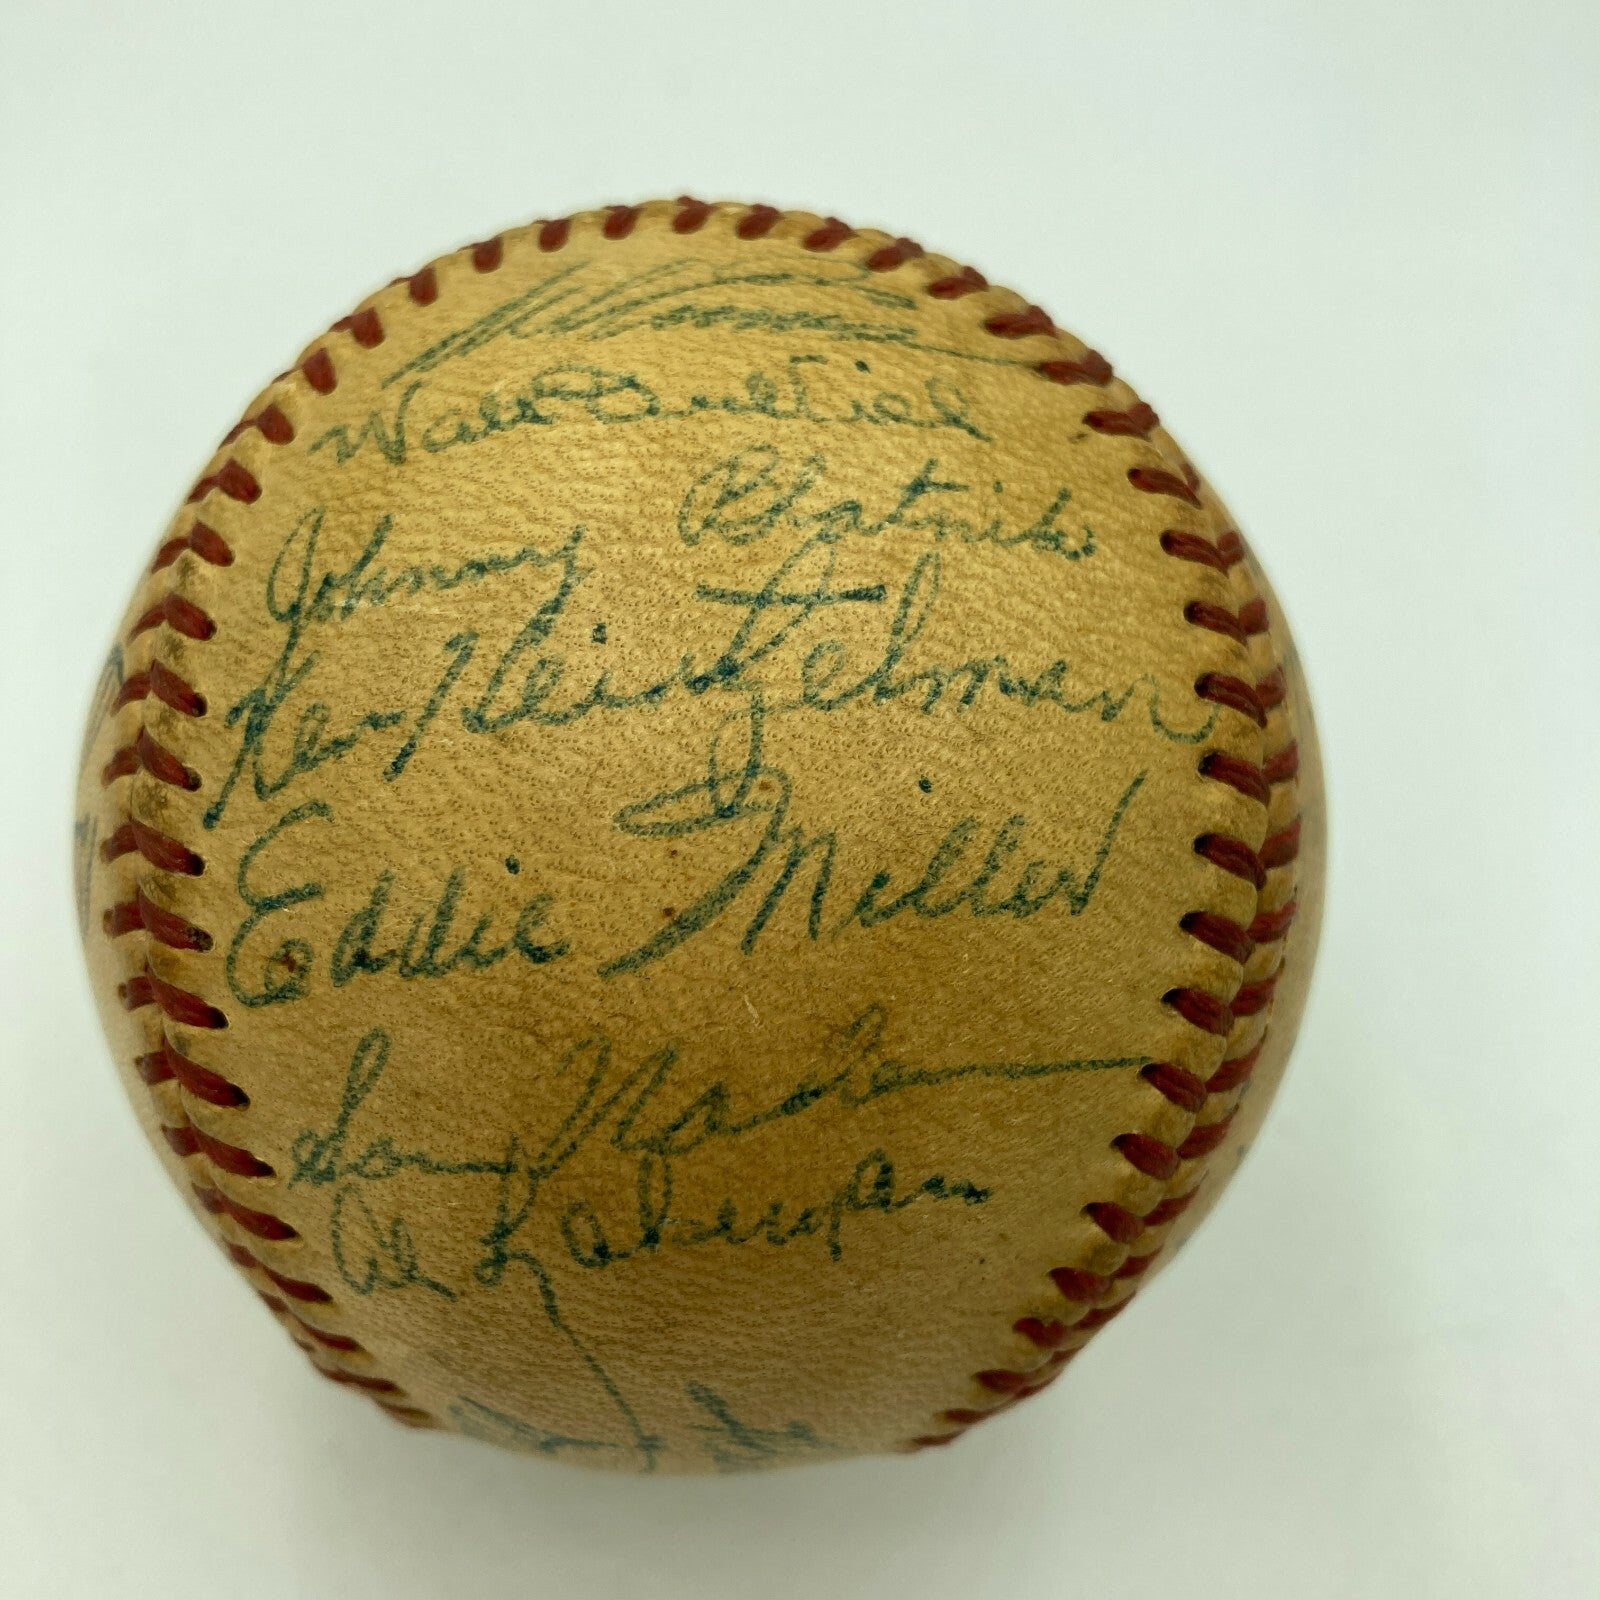 Walt Dubiel
Johnny Blatnik
Ken Heintzelman
Eddie Miller
Sam Nahem
Al Lakeman